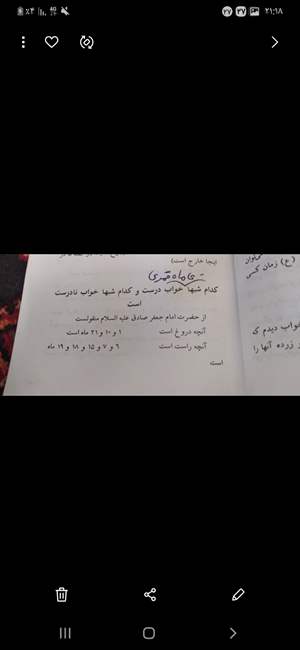 ٢١:١٨
اینجا خارج است)
ی ماه قمری
کدام شبها خواب درست و کدام شبها خواب نادرست
است
از حضرت امام جعفر صادق علیه السلام منقولست
آنچه دروغ است ۱ و ۱۰ و ۲۱ ماه است
آنچه راست است ۶ و ۷ و ۱۵ و ۱۸ و ۱۹ ماه
است
(ع) زمان کسی
خواب دیدم که
زرده آنها را